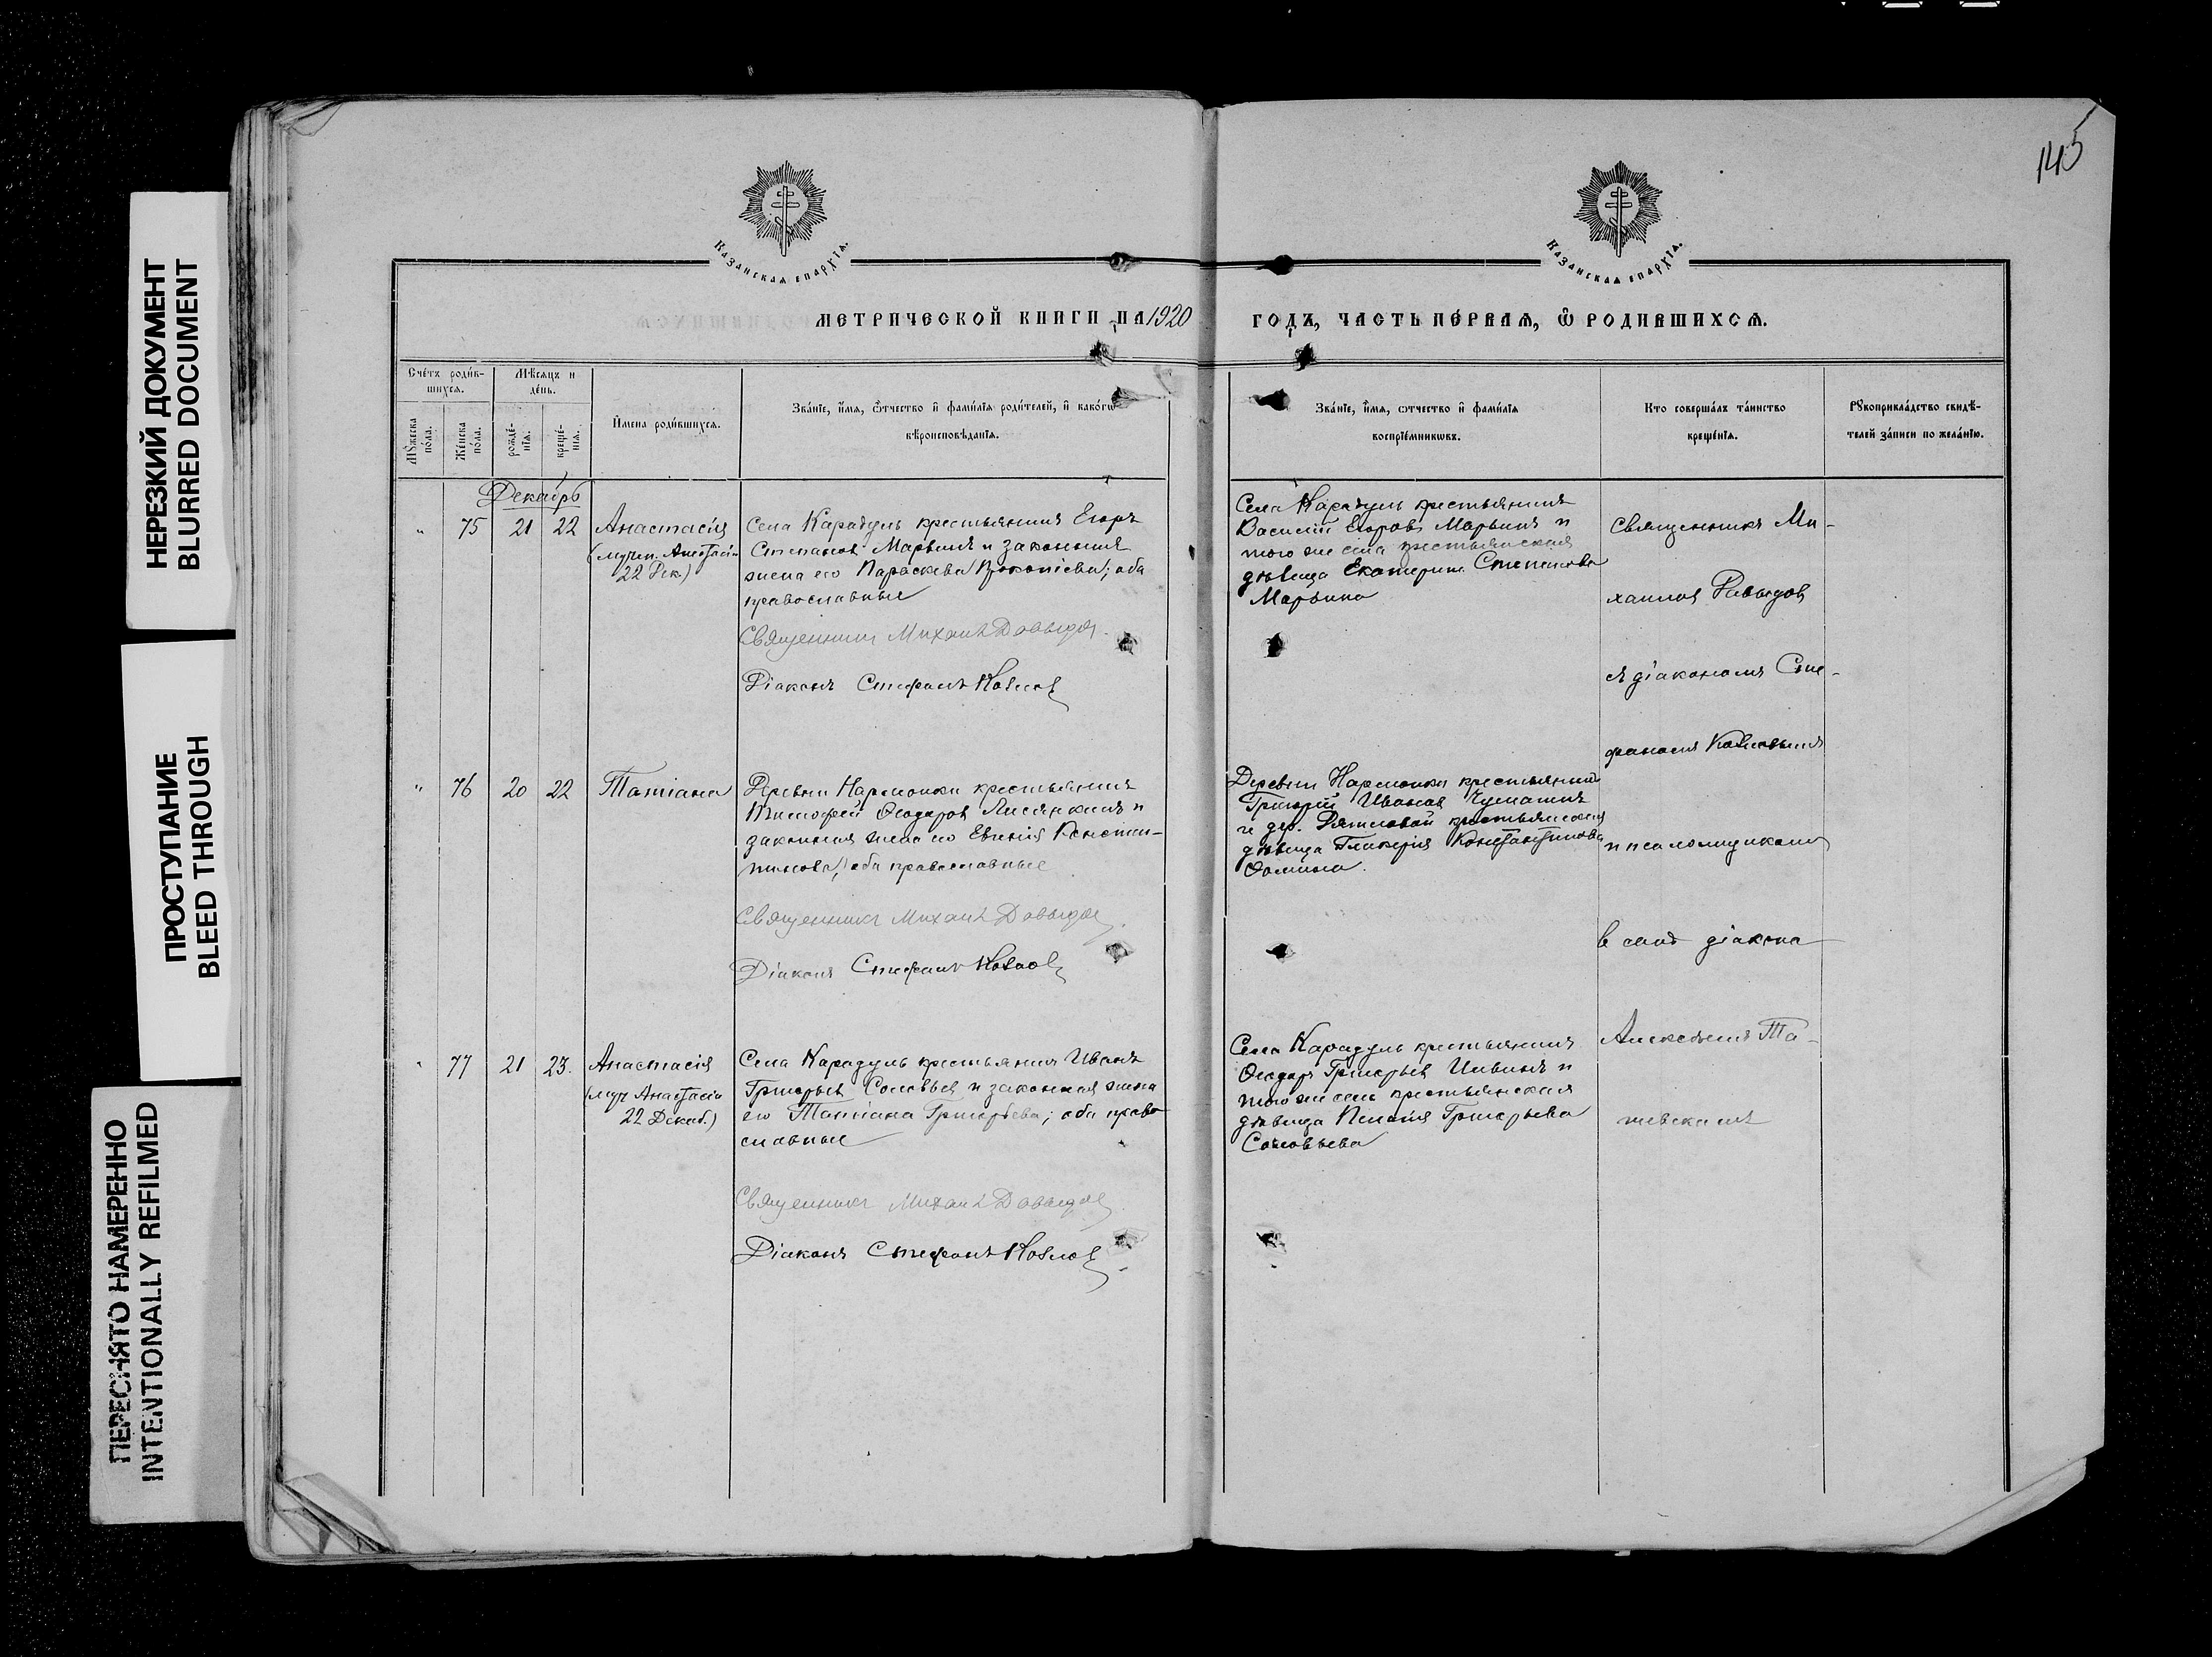 145
НЕРЕЗКИЙ ДОКУМЕНТ
BLURRED DOCUMENT
ПРОСТУПАНИЕ
BLEED THROUGH
ПЕРЕСНЯТО НАМЕРЕННО
INTENTIONALLY REFILMED
Казанская епархїѧ.
Казанская епархїѧ.
МЕТРИЧЕСКОЙ КНИГИ НА 1920
ГОДЪ, ЧАСТЬ ПЕ́РВАѦ, Ѡ РОДИВШИХСѦ.
Сче́тъ роди́в-
шихсѧ.
Мꙋ́жеска
по́ла.
Же́нска
по́ла.
Мѣ́сѧцъ и
де́нь.
рожде́-
нїѧ.
креще́-
нїѧ.
И́мена роди́вшихсѧ.
Зва́нїе, и́мѧ, ѻ́тчество и҆ фами́лїѧ роди́телей, и҆ како́гѡ
вѣ́роисповѣ́данїѧ.
Зва́нїе, и́мѧ, ѻ́тчество и҆ фами́лїѧ
воспрїе́мникѡвъ.
Кто соверша́лъ та́инство
креще́нїѧ.
Рꙋкоприкла́дство свидѣ́-
телей за́писи по жела́нїю.
Декабрь
" 75 21 22 Анастасія
(мучен. Анастасіи
22 Дек.)
Села Карадуль крестьянинъ Егоръ
Степановъ Марьинъ и законная
жена его Параскева Прокопіева; оба
православные
Священникъ Михаилъ Давыдов.
Діаконъ Стефанъ Козлов
Села Карадуль крестьянинъ
Василій Егоровъ Марьинъ и
того же села крестьянская
дѣвица Екатерина Степанова
Марьина
Священникъ Ми-
хаилъ Давыдов
съ діакономъ Сте-
фаномъ Козловымъ
и псаломщикомъ
в санѣ діакона
" 76 20 22 Татіана
Деревни Нармонки крестьянинъ
Тимофей Ѳеодоровъ и
законная жена его Евгенія Констан-
тинова; оба православные
Священникъ Михаилъ Давыдов.
Діаконъ Стефанъ Козлов
Деревни Нармонки крестьянинъ
Григорій Ивановъ Чумашинъ
и дер. крестьянская
дѣвица Гликерія Константинова
Ѳомина.
" 77 21 23. Анастасія
(муч Анастасіи
22 Декаб.)
Села Карадуль крестьянинъ Иванъ
Григорьев Соловьев и законная жена
его Татіана Григорьева; оба право
славные
Священникъ Михаилъ Давыдов.
Діаконъ Стефанъ Козлов
Села Карадуль крестьянинъ
Ѳеодоръ Григорьев и
того же села крестьянская
дѣвица Григорьева
Соловьева